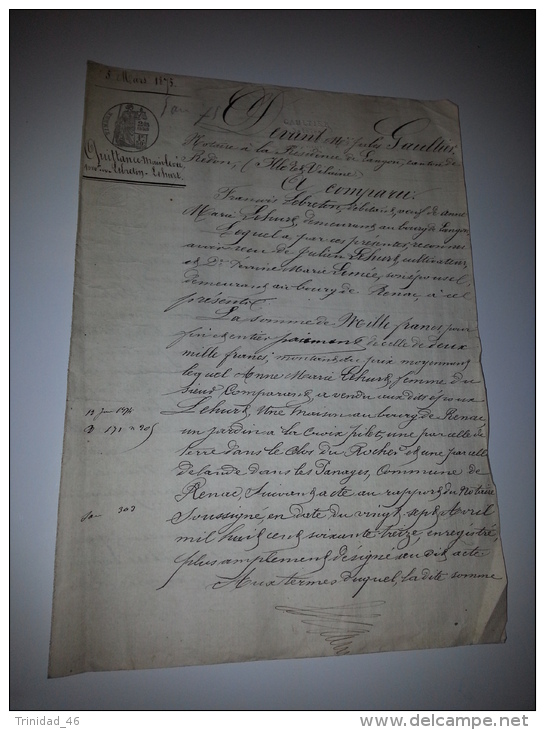 8 Mars 1875
Quittance Mainlevée
Lebreton Lehurt
Devant Me Jules Gaultier,
Notaire à la Résidence de Langon, canton de
Redon, (Ille et Vilaine)
A comparu:
François Lebreton, débitant, veuf de Anne
Marie Lehurt, demeurant au bourg de Langon
Lequel a par ces présentes, reconnu
avoir reçu de Julien Lehurt, cultivateur,
et De Perrine Marie Simée, son épouse,
demeurant au bourg de Renac, à ce
présente
La somme de Mille francs pour
fin et entier paiement de celle de deux
mille francs, montant du prix moyennant
lequel Anne Marie Lehurt, femme du
sieur Comparant, a vendu aux dits époux
Lehurt, Une maison au bourg de Renac
un jardin à la Croix pilet, une parcelle de
terre dans le Clos du Rocher et une parcelle
de lande dans les Panages, Commune de
Renac, suivant acte au rapport du Notaire
soussigné, en date du vingt sept Avril
mil huit cent soixante treize, enregistré,
plus amplement désigné au dit acte
Aux termes duquel, la dite somme
Trinidad_46
www.delcampe.net